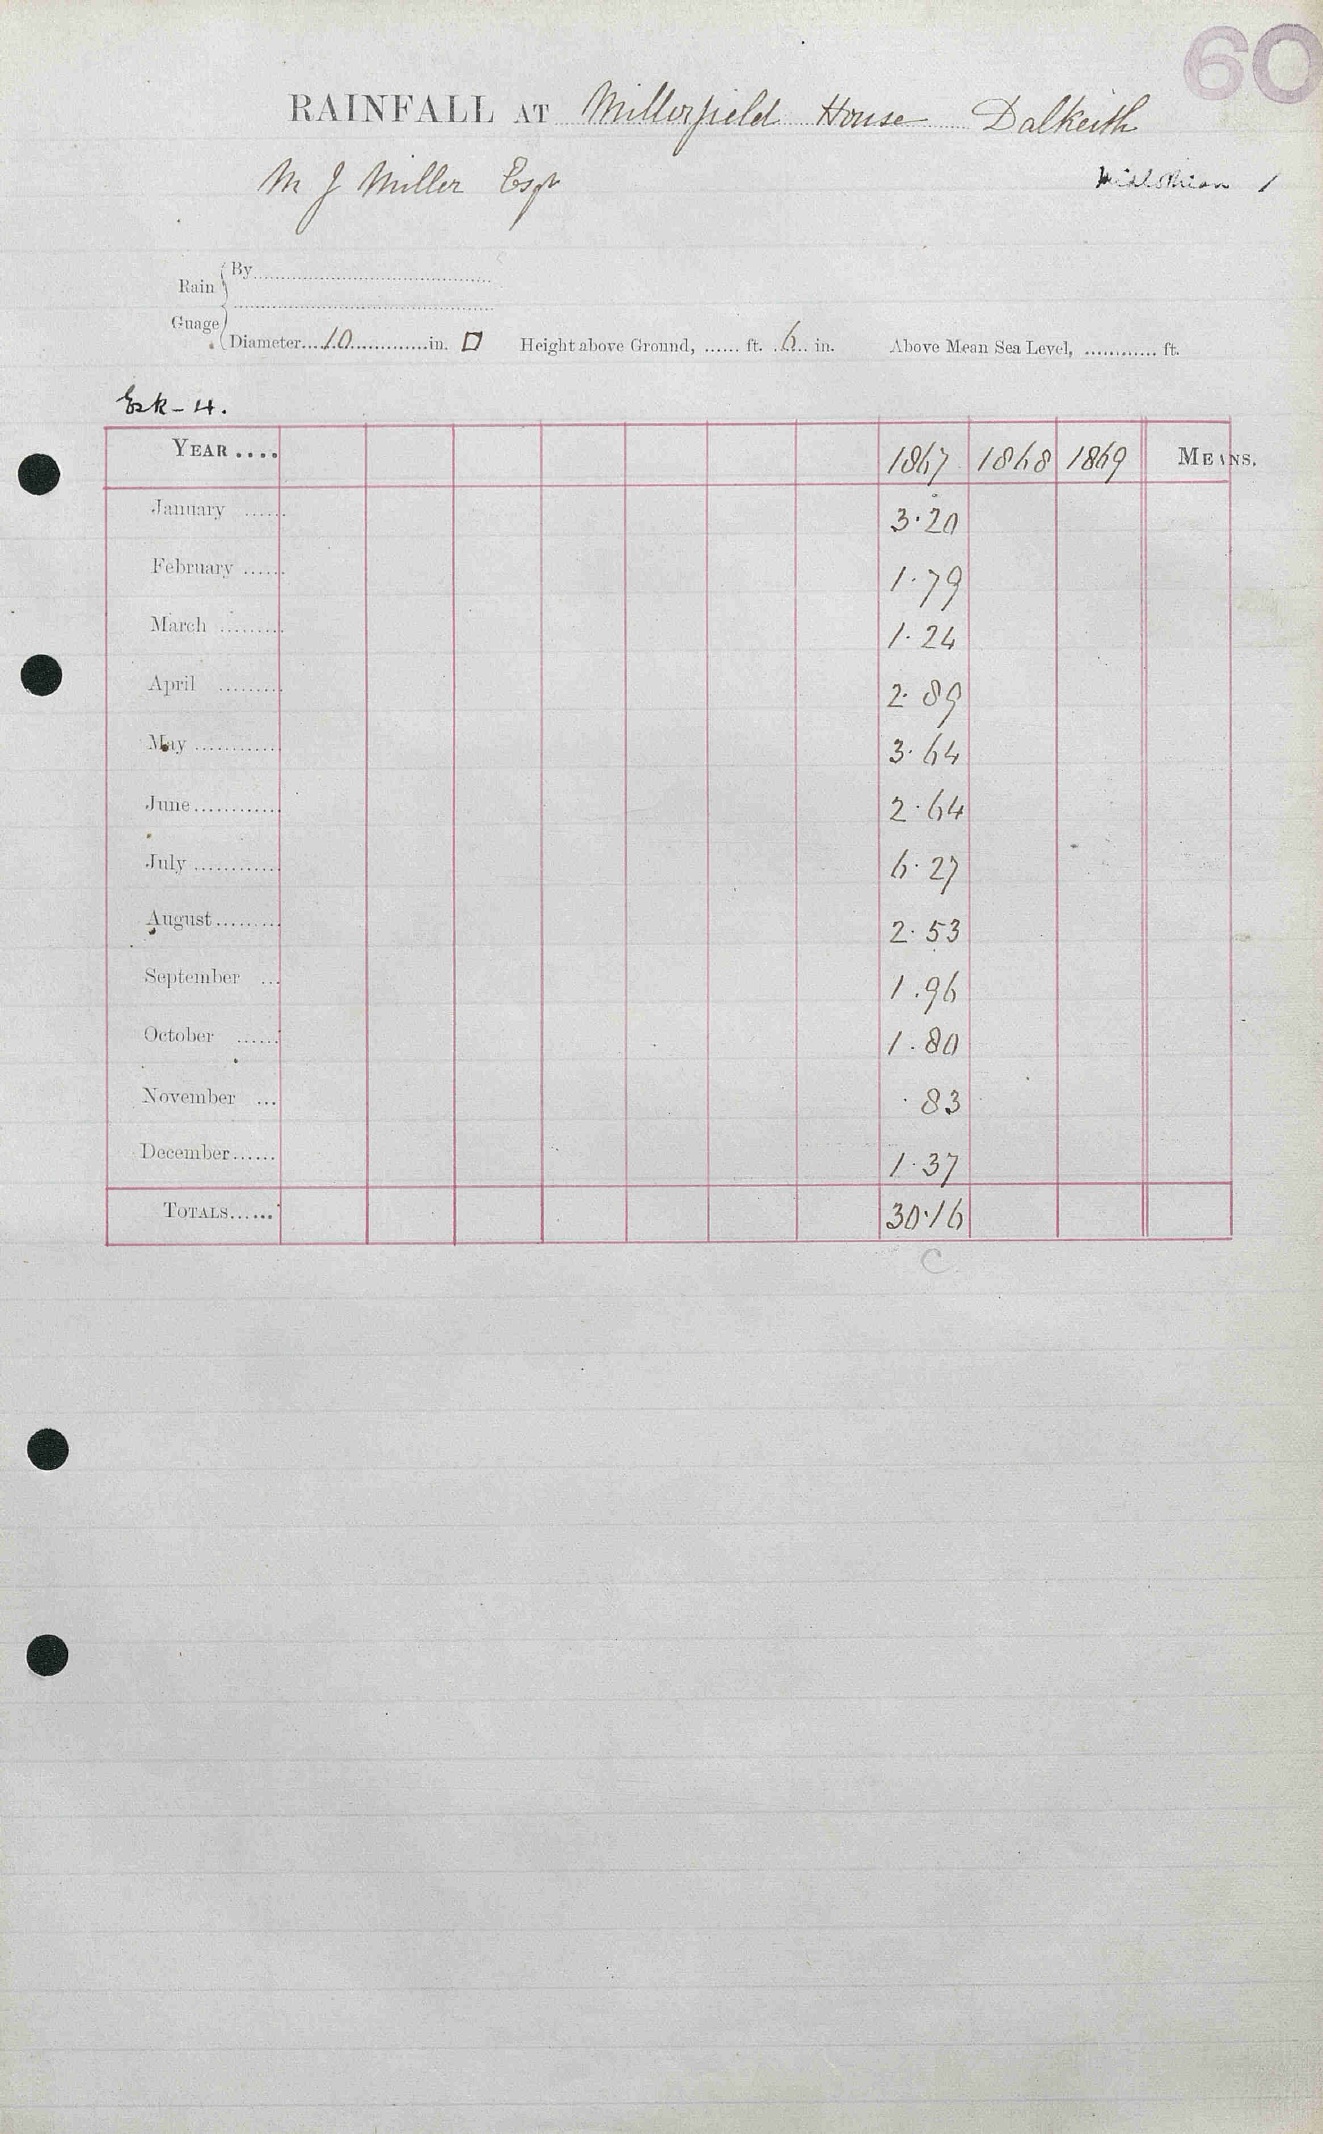 60
RAINFALL AT Millerfield House Dalkeith
M J Miller Esqr
Midlothian 1
Rain Guage
By
Diameter....10....in. □ Height above Ground, ...... ft. 6 in. Above Mean Sea Level, ............ ft.
Esk - 4.
YEAR .... 1867 1868 1869 MEANS.
January ...... 3.20
February ...... 1.79
March ......... 1.24
April ......... 2.89
May ............ 3.64
June............ 2.64
July ............ 6.27
August......... 2.53
September ... 1.96
October ...... 1.80
November ... .83
December...... 1.37
TOTALS...... 30.16
C